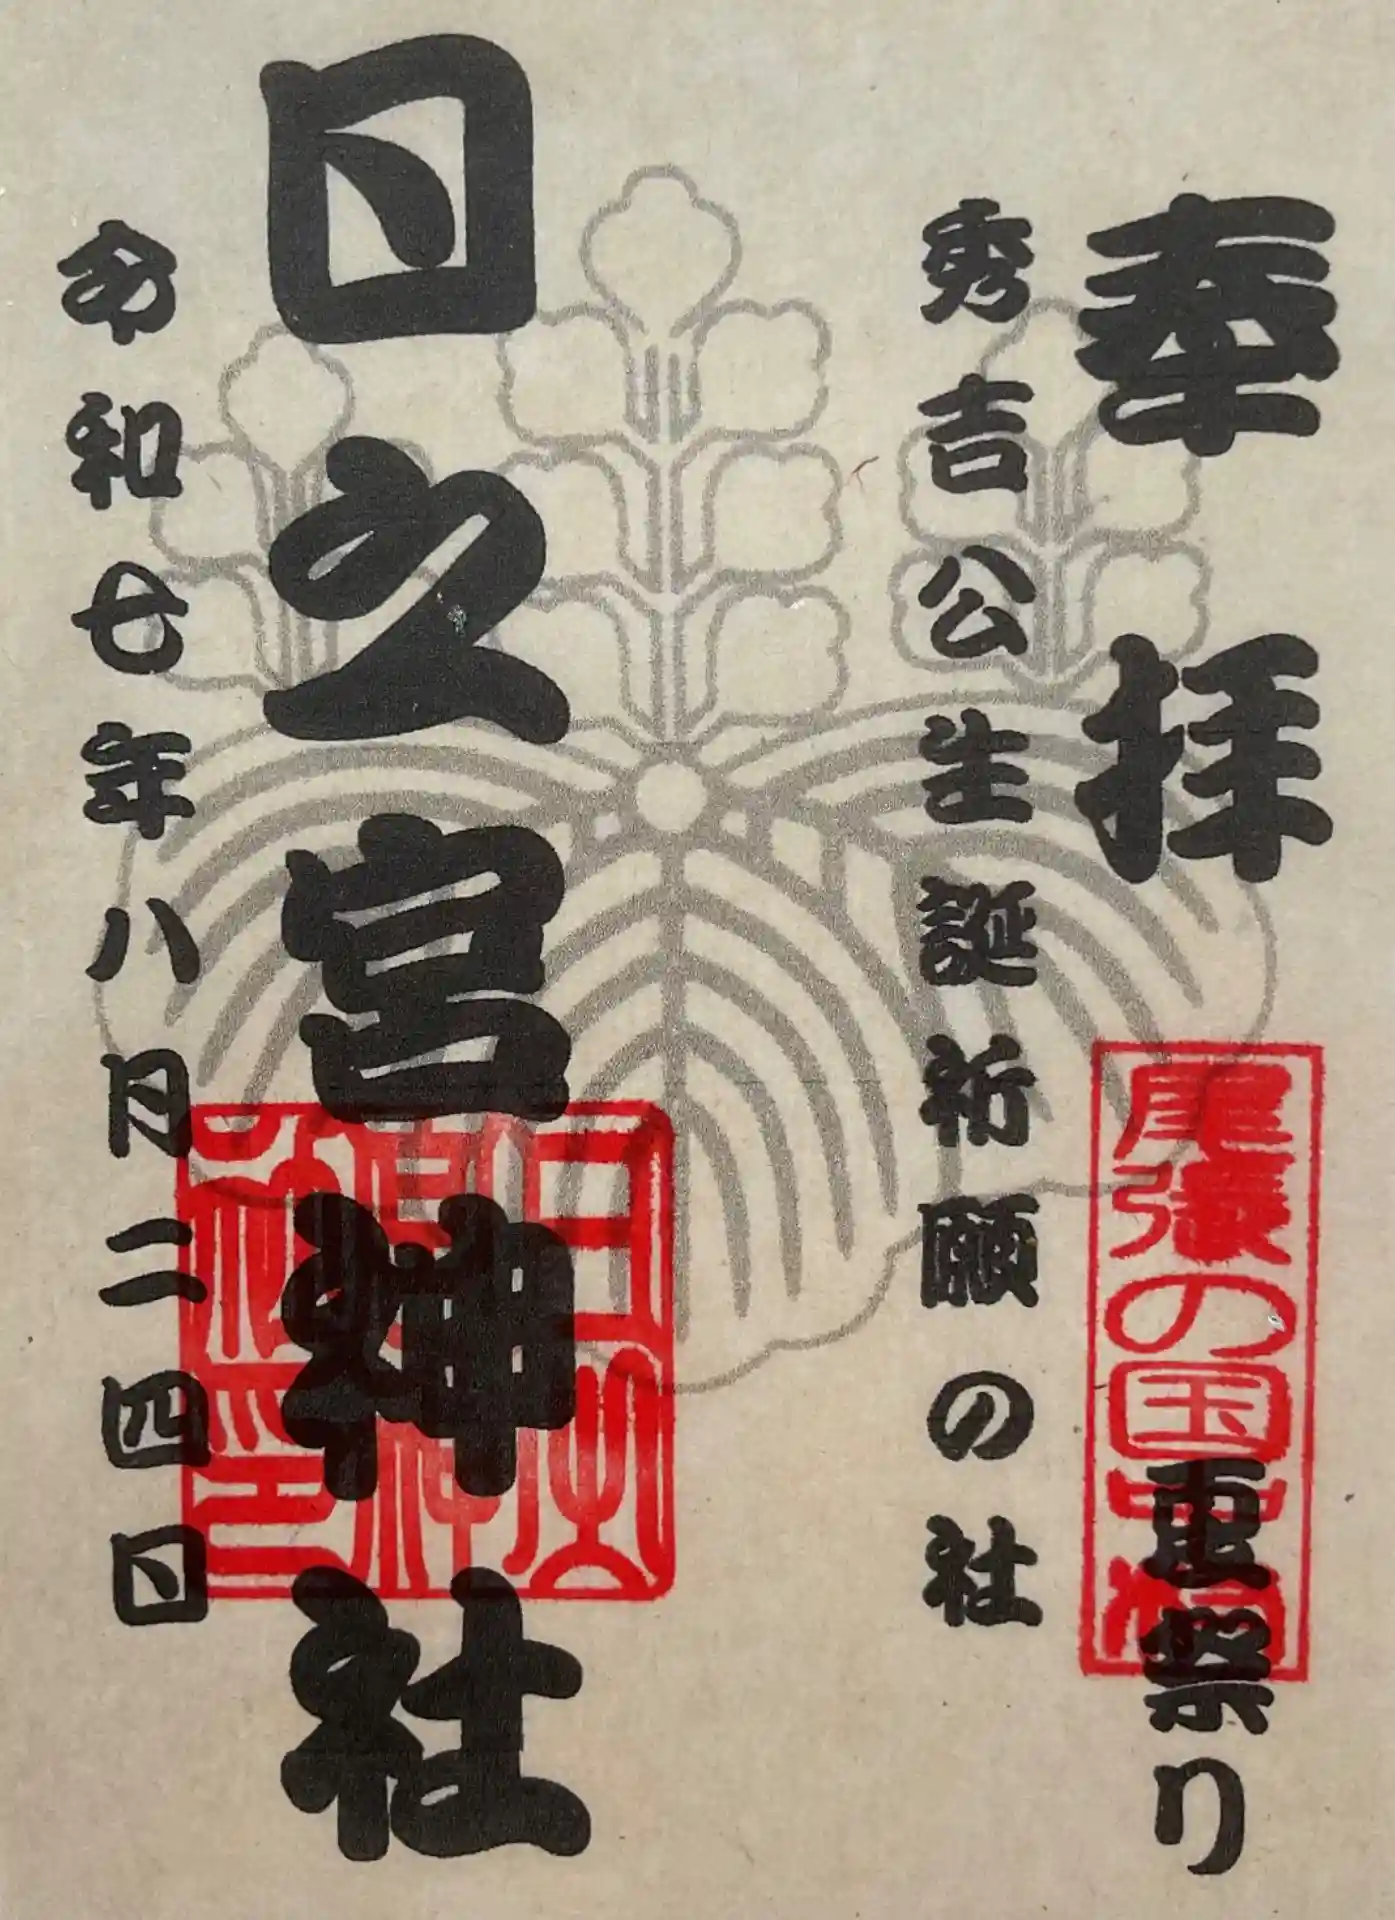 奉拝
尾張の国中村
祭り
秀吉公生誕祈願の社
日之宮神社
日之
宮神
社印
令和七年八月二四日